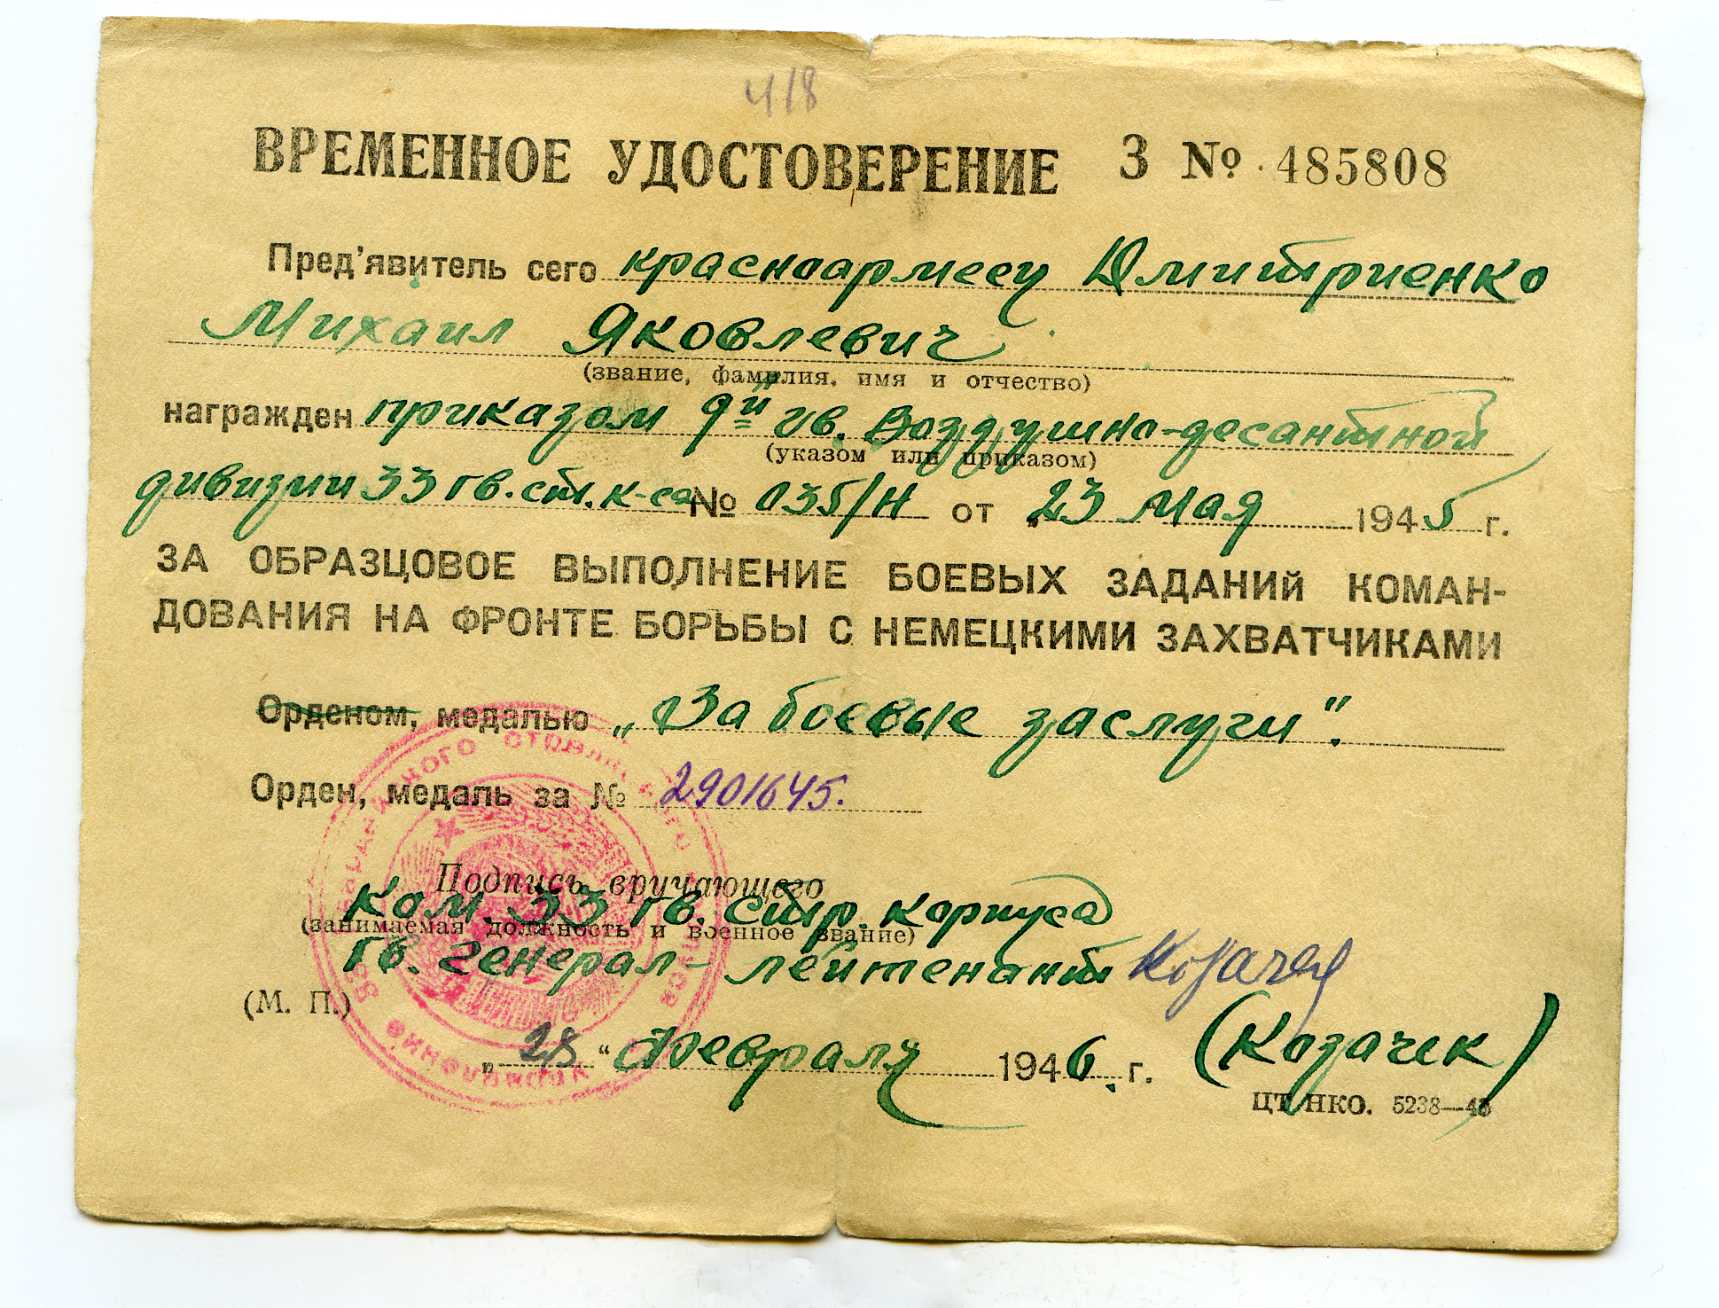 418
ВРЕМЕННОЕ УДОСТОВЕРЕНИЕ З № 485808
Пред'явитель сего красноармеец Дмитриенко
Михаил Яковлевич
(звание, фамилия, имя и отчество)
награжден приказом 9й гв. Воздушно-десантной
(указом или приказом)
дивизии 33 гв. ст. к-са № 035/Н от „23 Мая 1945 г.
ЗА ОБРАЗЦОВОЕ ВЫПОЛНЕНИЕ БОЕВЫХ ЗАДАНИЙ КОМАН-
ДОВАНИЯ НА ФРОНТЕ БОРЬБЫ С НЕМЕЦКИМИ ЗАХВАТЧИКАМИ
Орденом, медалью „За боевые заслуги".
Орден, медаль за № 2901645.
Подпись вручающего
Ком. 33 гв. стр. корпуса
(занимаемая должность и военное звание)
гв. генерал-лейтенант Козачек
(М. П.)
„28" Февраля 1946. г. (Козачек)
ЦТ НКО. 5238—45